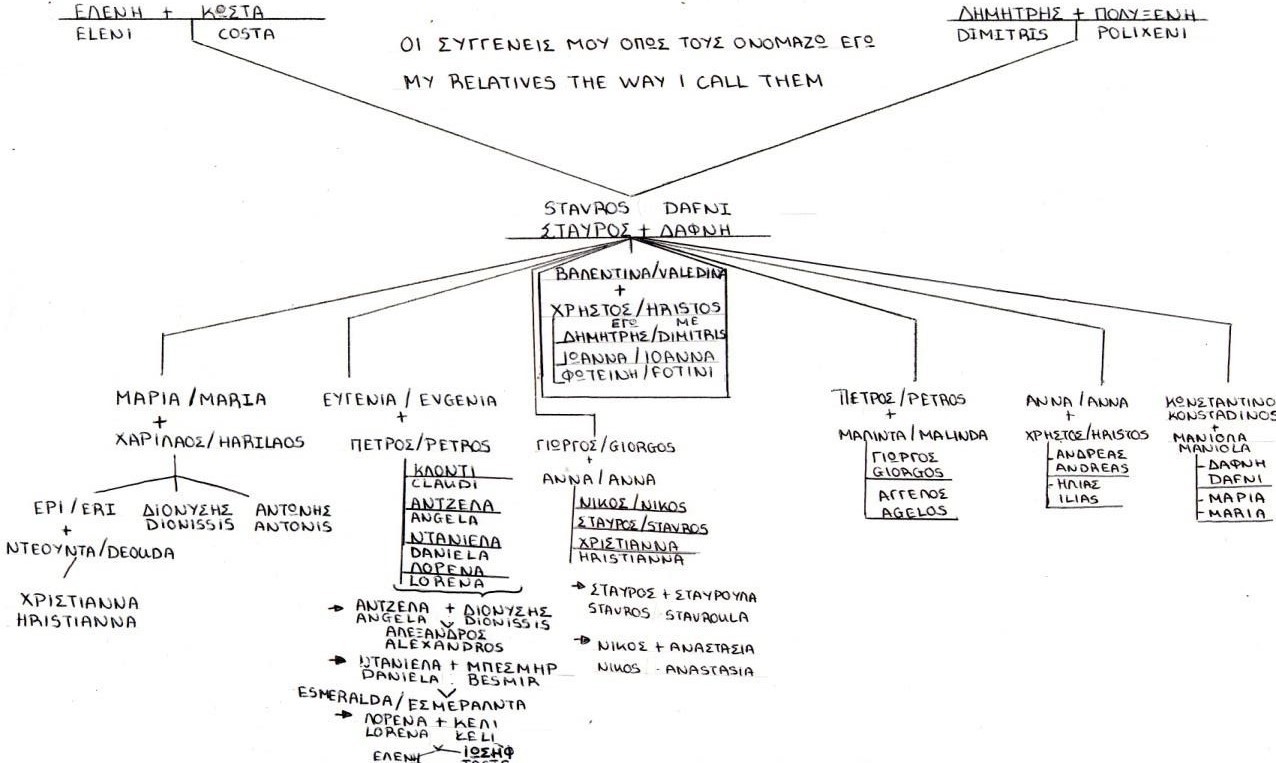 ΕΛΕΝΗ + ΚΩΣΤΑ
ELENI COSTA
ΔΗΜΗΤΡΗΣ + ΠΟΛΥΞΕΝΗ
DIMITRIS POLIXENI
ΟΙ ΣΥΓΓΕΝΕΙΣ ΜΟΥ ΟΠΩΣ ΤΟΥΣ ΟΝΟΜΑΖΩ ΕΓΩ
MY RELATIVES THE WAY I CALL THEM
STAVROS DAFNI
ΣΤΑΥΡΟΣ + ΔΑΦΝΗ
ΒΑΛΕΝΤΙΝΑ/VALEDINA
+
ΧΡΗΣΤΟΣ/HRISTOS
ΕΓΩ ME
ΔΗΜΗΤΡΗΣ/DIMITRIS
ΙΩΑΝΝΑ/IOANNA
ΦΩΤΕΙΝΗ/FOTINI
ΜΑΡΙΑ/MARIA
+
ΧΑΡΙΛΑΟΣ/HARILAOS
ΕΡΙ/ERI
+
ΝΤΕΟΥΝΤΑ/DEOUDA
ΧΡΙΣΤΙΑΝΝΑ
HRISTIANNA
ΔΙΟΝΥΣΗΣ
DIONISSIS
ΑΝΤΩΝΗΣ
ANTONIS
ΕΥΓΕΝΙΑ/EVGENIA
+
ΠΕΤΡΟΣ/PETROS
ΚΛΟΝΤΙ
CLAUDI
ΑΝΤΖΕΛΑ
ANGELA
ΝΤΑΝΙΕΛΑ
DANIELA
ΛΟΡΕΝΑ
LORENA
→ ΑΝΤΖΕΛΑ + ΔΙΟΝΥΣΗΣ
ANGELA DIONISSIS
ΑΛΕΞΑΝΔΡΟΣ
ALEXANDROS
→ ΝΤΑΝΙΕΛΑ + ΜΠΕΣΜΗΡ
DANIELA BESMIR
ESMERALDA/ΕΣΜΕΡΑΛΝΤΑ
→ ΛΟΡΕΝΑ + ΚΕΛΙ
LORENA KELI
ΕΛΕΝΗ ΙΩΣΗΦ
ΓΙΩΡΓΟΣ/GIORGOS
+
ΑΝΝΑ/ANNA
ΝΙΚΟΣ/NIKOS
ΣΤΑΥΡΟΣ/STAVROS
ΧΡΙΣΤΙΑΝΝΑ
HRISTIANNA
→ ΣΤΑΥΡΟΣ + ΣΤΑΥΡΟΥΛΑ
STAVROS - STAVROULA
→ ΝΙΚΟΣ + ΑΝΑΣΤΑΣΙΑ
NIKOS - ANASTASIA
ΠΕΤΡΟΣ/PETROS
+
ΜΑΛΙΝΤΑ/MALINDA
ΓΙΩΡΓΟΣ
GIORGOS
ΑΓΓΕΛΟΣ
AGELOS
ΑΝΝΑ/ANNA
+
ΧΡΗΣΤΟΣ/HRISTOS
ΑΝΔΡΕΑΣ
ANDREAS
ΗΛΙΑΣ
ILIAS
ΚΩΝΣΤΑΝΤΙΝΟ
KONSTADINOS
+
ΜΑΝΙΟΛΑ
MANIOLA
ΔΑΦΝΗ
DAFNI
ΜΑΡΙΑ
MARIA